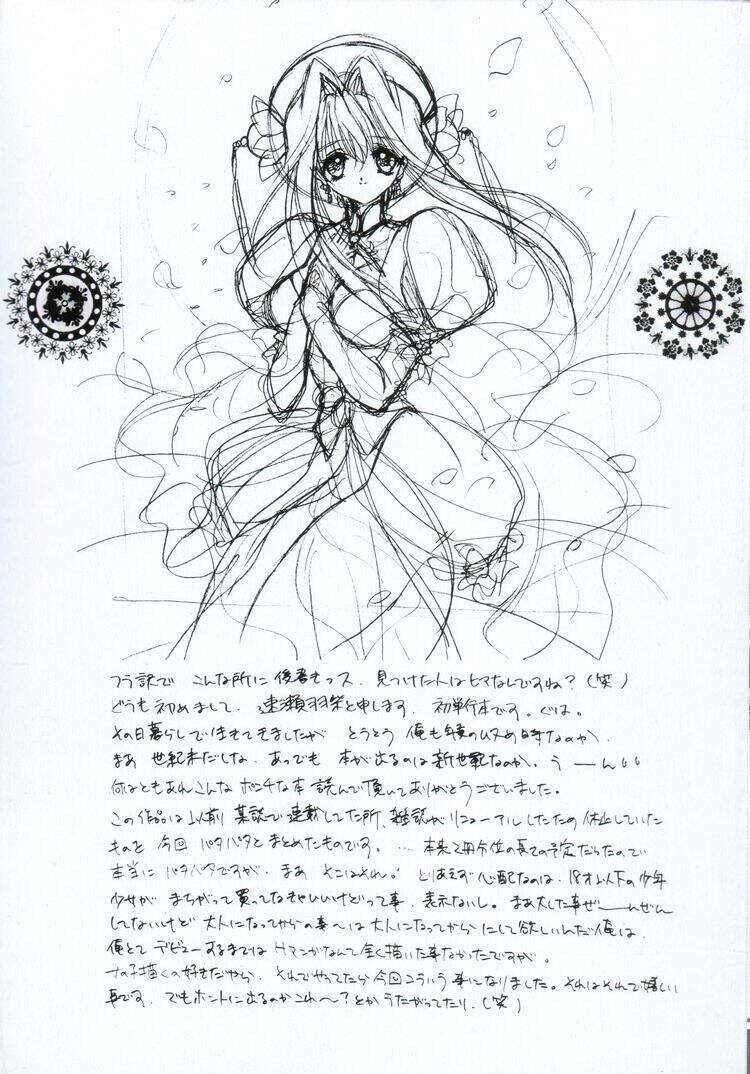 つう訳で こんな所に後書きっス。見つけた人はヒマなんですね？(笑)
どうも初めまして。速瀬羽柴と申します。初単行本です。ぐは。
その日暮らしで生きてきましたが とうとう 俺も年貢の収め時なのか。
まあ 世紀末だしな。あっでも 本が出るのは新世紀なのか。う〜ん
何はともあれこんな ポンチな本 読んで頂いてありがとうございました。
この作品は以前 某誌で連載してた所、雑誌がリニューアルしたため休止していた
ものを 今回 バタバタとまとめたものです。… 本来2冊分位の長さの予定だったので
本当に バタバタですが。まあ そこはそれ。とりあえず心配なのは、18才以下の少年
少女が まちがって買ってなきゃいいけどって事。表示ないし。まあ大した事ぜーんぜん
してないけど 大人になってからの事〜は大人になってからにして欲しいんだ俺は。
俺とて デビューするまでは Hマンガなんて全く描いた事なかったですが。
女の子描くの好きだから、それでやってたら今回こういう事になりました。それはそれで嬉しい
事です。でもホントに出るのかこれ〜？とか うたがってたり。(笑)